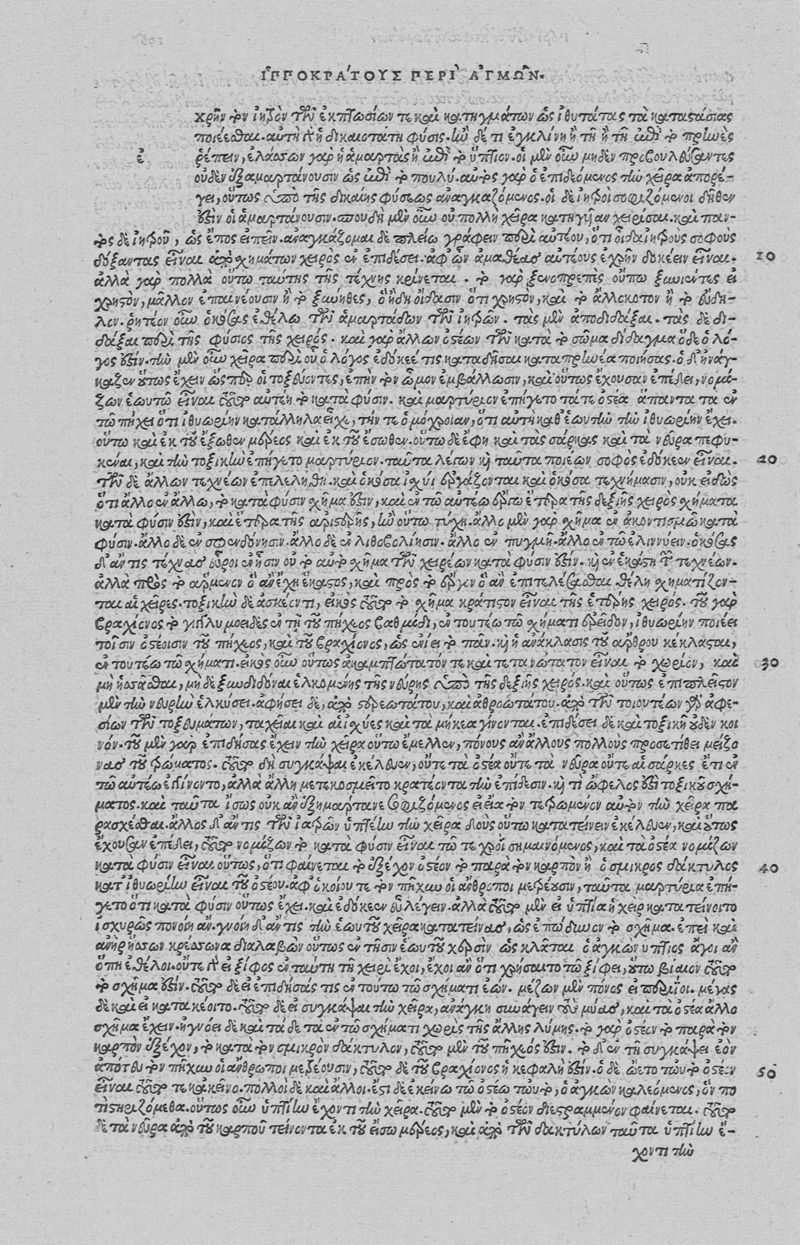 ἹΠΠΟΚΡΆΤΟΥΣ ΠΕΡῚ ἈΓΜΩ͂Ν.
χρῆν τὸν ἰητρὸν τῶν ἐκπτωσίων τε καὶ κατηγμάτων ὡς ἰθυτάτας τὰς κατατάσιας
ποιέεσθαι. αὕτη γὰρ ἡ δικαιοτάτη φύσις. ἢν δέ τι ἐγκλίνῃ ἢ τῇ ἢ τῇ, ἐπὶ τὸ πρηνὲς
ῥέπειν, ἐλάσσων γὰρ ἡ ἁμαρτὰς ἢ ἐπὶ τὸ ὕπτιον. οἱ μὲν οὖν μηδὲν προβουλεύσαντες
ἐ
οὐδὲν ἐξαμαρτάνουσιν ὡς ἐπὶ τὸ πουλύ. αὐτὸς γὰρ ὁ ἐπιδεόμενος τὴν χεῖρα ἀπορέ-
γει, οὕτως ὑπὸ τῆς δικαίης φύσεως ἀναγκαζόμενος. οἱ δὲ ἰητροὶ σοφιζόμενοι δῆθεν
ἐστὶν οἱ ἁμαρτάνουσιν. σπουδὴ μὲν οὖν οὐ πολλὴ χεῖρα κατηγυῖαν χειρίσαι. καὶ παν-
τὸς δὲ ἰητροῦ, ὡς ἔπος εἰπεῖν. ἀναγκάζομαι δὲ πλείω γράφειν περὶ αὐτέου, ὅτι οἶδα ἰητροὺς σοφοὺς
δόξαντας εἶναι ἀπὸ σχημάτων χειρὸς ἐν ἐπιδέσει. ἀφ' ὧν ἀμαθέας αὐτέους ἐχρῆν δοκέειν εἶναι.
10
ἀλλὰ γὰρ πολλὰ οὕτω ταύτης τῆς τέχνης κρίνεται. τὸ γὰρ ξενοπρεπὲς οὔπω ξυνιέντες εἰ
χρηστὸν, μᾶλλον ἐπαινέουσιν ἢ τὸ ξύνηθες, ὃ ἤδη οἴδασιν ὅτι χρηστὸν, καὶ τὸ ἀλλόκοτον ἢ τὸ εὔδη-
λον. ῥητέον οὖν ὁκόσας ἐθέλω τῶν ἁμαρτάδων τῶν ἰητρῶν. τὰς μὲν ἀποδιδάξαι. τὰς δὲ δι-
δάξαι περὶ τῆς φύσιος τῆς χειρός. καὶ γὰρ ἄλλων ὀστέων τῶν κατὰ τὸ σῶμα δίδαγμα ὅδε ὁ λό-
γος ἐστίν. τὴν μὲν οὖν χεῖρα περὶ οὗ ὁ λόγος ἔδωκέ τις καταδῆσαι καταπρηνέα ποιήσας. ὁ δ' ἠνάγ-
καζεν οὕτως ἔχειν ὥσπερ οἱ τοξεύοντες, ἐπὴν τὸν ὦμον ἐμβάλλωσιν, καὶ οὕτως ἔχουσαν ἐπέδει, νομί-
ζων ἑωυτῷ εἶναι τοῦτο αὐτέῃ τὸ κατὰ φύσιν. καὶ μαρτύριον ἐπήγετο τά τε ὀστέα ἅπαντα τὰ ἐν
τῷ πήχει ὅτι ἰθυωρίην κατάλληλα εἶχε, τήν τε ὁμόχροιαν, ὅτι αὐτὴ καθ' ἑωυτὴν τὴν ἰθυωρίην ἔχει.
οὕτω καὶ ἐκ τοῦ ἔξωθεν μέρεος καὶ ἐκ τοῦ ἔσωθεν. οὕτω δὲ ἔφη καὶ τὰς σάρκας καὶ τὰ νεῦρα πεφυ-
κέναι, καὶ τὴν τοξικὴν ἐπήγετο μαρτύριον. ταῦτα λέγων καὶ ταῦτα ποιέων σοφὸς ἐδόκεεν εἶναι.
20
τῶν δὲ ἄλλων τεχνέων ἐπελελήθη. καὶ ὁκόσα ἰσχύϊ ἐργάζονται καὶ ὁκόσα τεχνήμασιν, οὐκ εἰδὼς
ὅτι ἄλλο ἐν ἄλλῳ, τὸ κατὰ φύσιν σχῆμά ἐστιν, καὶ ἐν τῷ αὐτέῳ ἔργῳ ἕτερα τῆς δεξιῆς χειρὸς σχήματα
κατὰ φύσιν ἐστὶν, καὶ ἕτερα τῆς ἀριστερῆς, ἢν οὕτω τύχῃ. ἄλλο μὲν γὰρ σχῆμα ἐν ἀκοντισμῷ κατὰ
φύσιν. ἄλλο δὲ ἐν σφενδονήσιν. ἄλλο δὲ ἐν λιθοβολίησιν. ἄλλο ἐν πυγμῇ. ἄλλο ἐν τῷ ἐλινύειν. ὁκόσας
δ' ἄν τις τέχνας εὕροι ἐν ᾗσιν οὐ τὸ αὐτὸ σχῆμα τῶν χειρέων κατὰ φύσιν ἐστὶν. καὶ ἐν ἑκάστῃ τῶν τεχνέων.
ἀλλὰ πρὸς τὸ ἄρμενον ὃ ἂν ἔχῃ ἕκαστος, καὶ πρὸς τὸ ἔργον ὃ ἂν ἐπιτελέσασθαι θέλῃ σχηματίζον-
ται αἱ χεῖρες. τοξικὴν δὲ ἀσκέοντι, εἰκὸς τοῦτο τὸ σχῆμα κράτιστον εἶναι τῆς ἑτέρης χειρός. τοῦ γὰρ
βραχίονος τὸ γιγγλυμοειδὲς ἐν τῇ τοῦ πήχεος βαθμίδι, ἐν τουτέῳ τῷ σχήματι ἐρεῖδον, ἰθυωρίην ποιέει
τοῖσιν ὀστέοισιν τοῦ πήχεος, καὶ τοῦ βραχίονος, ὡς ἓν εἴη τὸ πᾶν. καὶ ἡ ἀνάκλασις τοῦ ἄρθρου κέκλασται,
ἐν τουτέῳ τῷ σχήματι. εἰκὸς οὖν οὕτως ἀκαμπτότατόν τε καὶ τετανώτατον εἶναι τὸ χωρίον, καὶ
30
μὴ ἡσσᾶσθαι, μηδὲ ξυνδιδόναι ἑλκομένης τῆς νευρῆς ὑπὸ τῆς δεξιῆς χειρός. καὶ οὕτως ἐπὶ πλεῖστον
μὲν τὴν νευρὴν ἑλκύσει. ἀφήσει δὲ, ἀπὸ στερεωτάτου, καὶ ἀθροωτάτου. ἀπὸ τῶν τοιουτέων γὰρ ἀφε-
σίων τῶν τοξευμάτων, ταχεῖαι καὶ αἱ ἰσχύες καὶ τὰ μήκεα γίνονται. ἐπιδέσει δὲ καὶ τοξικῇ οὐδὲν κοι
νόν. τοῦ μὲν γὰρ ἐπιδήσας ἔχειν τὴν χεῖρα οὕτω ἔμελλεν, πόνους ἂν ἄλλους πολλοὺς προσετίθει μείζο
νας τοῦ τρώματος. τοῦτο δὴ συγκάμψαι ἐκέλευεν, οὔτε τὰ ὀστέα οὔτε τὰ νεῦρα οὔτε αἱ σάρκες ἔτι ἐν
τῷ αὐτέῳ ἐγίνοντο, ἀλλὰ ἄλλῃ μετεκοσμεῖτο κρατέοντα τὴν ἐπίδεσιν. καὶ τί ὤφελός ἐστι τοξικοῦ σχή-
ματος. καὶ ταῦτα ἴσως οὐκ ἂν ἐξημάρτανε σοφιζόμενος εἰ εἴα τὸν τετρωμένον αὐτὸν τὴν χεῖρα πα
ρασχέσθαι. ἄλλος δ' ἄν τις τῶν ἰητρῶν ὑπτίην τὴν χεῖρα δοὺς οὕτω κατατείνειν ἐκέλευεν, καὶ οὕτως
ἔχουσαν ἐπέδει, τοῦτο νομίζων τὸ κατὰ φύσιν εἶναι τῷ τε χροῒ σημαινόμενος, καὶ τὰ ὀστέα νομίζων
κατὰ φύσιν εἶναι οὕτως, ὅτι φαίνεται τὸ ἐξέχον ὀστέον τὸ παρὰ τὸν καρπὸν ᾗ ὁ σμικρὸς δάκτυλος
40
κατ' ἰθυωρίην εἶναι τοῦ ὀστέου. ἀφ' ὁκοίου τε τὸν πῆχυν οἱ ἄνθρωποι μετρέουσιν, ταῦτα μαρτύρια ἐπή-
γετο ὅτι κατὰ φύσιν οὕτως ἔχει. καὶ ἐδόκεεν εὖ λέγειν. ἀλλὰ τοῦτο μὲν εἰ ὑπτία ἡ χεὶρ κατατείνοιτο
ἰσχυρῶς πονοίη ἄν. γνοίη δ' ἄν τις τὴν ἑωυτοῦ χεῖρα κατατείνας, ὡς ἐπώδυνον τὸ σχῆμα. ἐπεὶ καὶ
ἀνὴρ ἥσσων κρέσσονα διαλαβὼν οὕτως ἐν τῇσιν ἑωυτοῦ χερσὶν ὡς κλᾶται ὁ ἀγκὼν ὕπτιος ἄγοι ἂν
ὅπῃ ἐθέλοι. οὔτε γὰρ εἰ ξίφος ἐν ταύτῃ τῇ χειρὶ ἔχοι, ἔχοι ἂν ὅτι χρήσαιτο τῷ ξίφει, οὕτω βίαιον τοῦτο
τὸ σχῆμά ἐστιν. τοῦτο δὲ εἰ ἐπιδήσας τις ἐν τούτῳ τῷ σχήματι ἐῴη. μέζων μὲν πόνος εἰ περιΐοι. μέγας
δὲ καὶ εἰ κατακέοιτο. τοῦτο δὲ εἰ συγκάμψαι τὴν χεῖρα, ἀνάγκη συνάγειν τοὺς μύας, καὶ τὰ ὀστέα ἄλλο
σχῆμα ἔχειν. ἠγνόει δὲ καὶ τάδε τὰ ἐν τῷ σχήματι χωρὶς τῆς ἄλλης λύμης. τὸ γὰρ ὀστέον τὸ παρὰ τὸν
καρπὸν ἐξέχον, τὸ κατὰ τὸν σμικρὸν δάκτυλον, τοῦτο μὲν τοῦ πήχεός ἐστιν. τὸ δ' ἐν τῇ συγκάμψει ἐὸν
ἀπό τευ τὸν πῆχυν οἱ ἄνθρωποι μετρέουσιν, τοῦτο δὲ τοῦ βραχίονος ἡ κεφαλή ἐστιν. ὁ δὲ ᾤετο τωὐτὸ ὀστέον
50
εἶναι τοῦτό τε κἀκεῖνο. πολλοὶ δὲ καὶ ἄλλοι. ἔστι δὲ ἐκείνῳ τῷ ὀστέῳ τωὐτὸ, ὁ ἀγκὼν καλεόμενος, ὃν πο
τὶ στηριζόμεθα. οὕτως οὖν ὑπτίην ἔχοντι τὴν χεῖρα. τοῦτο μὲν τὸ ὀστέον διεστραμμένον φαίνεται. τοῦτο
δὲ τὰ νεῦρα ἀπὸ τοῦ καρποῦ τείνοντα ἐκ τοῦ εἴσω μέρεος, καὶ ἀπὸ τῶν δακτύλων ταῦτα ὑπτίην ἔ-
χοντι τὴν